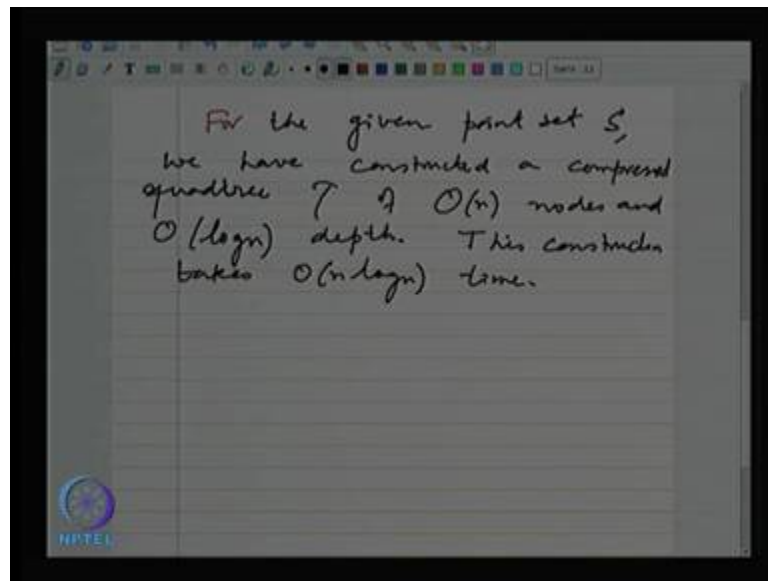 For the given point set S,
we have constructed a compressed
quadtree T of O(n) nodes and
O(logn) depth. This construction
takes O(n logn) time.
NPTEL